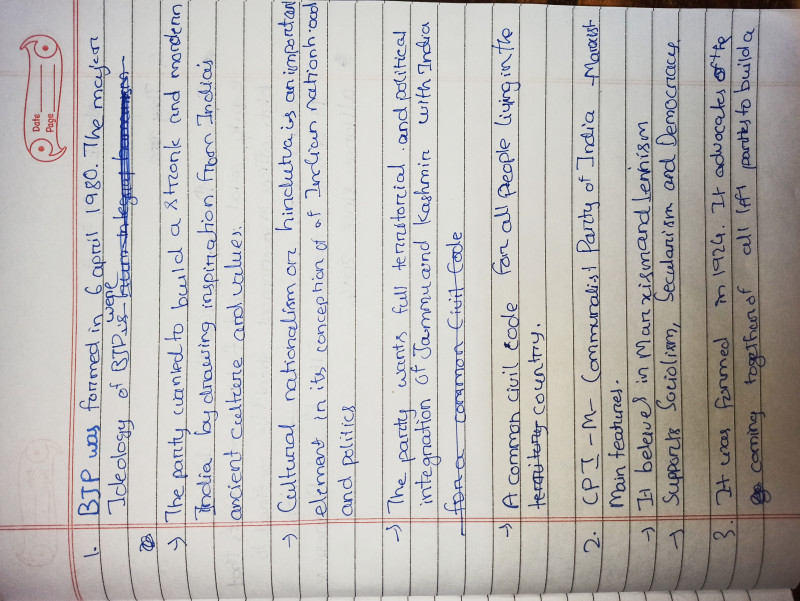 Date
Page
1. BJP was formed in 6 april 1980. The major
Ideology of BJP were
→ The party wanted to build a stronk and mordern
India by drawing inspiration from India's
ancient culture and values.
→ Cultural nationalism or hindutva is an important
element in its conception of of Indian nationhood
and politics
→ The party wants full territorial and political
integration of Jammu and Kashmir with India
for a common Civil Code
→ A common civil code for all people living in the
territory country.
2. CPI-M- Communalist Party of India -Marxist
Main features.
→ It beleves in Marxism and lennism
→ Supports Socialism, Secularism and Democracy
3. It was formed in 1924. It advocates of the
coming together of all left parties to build a